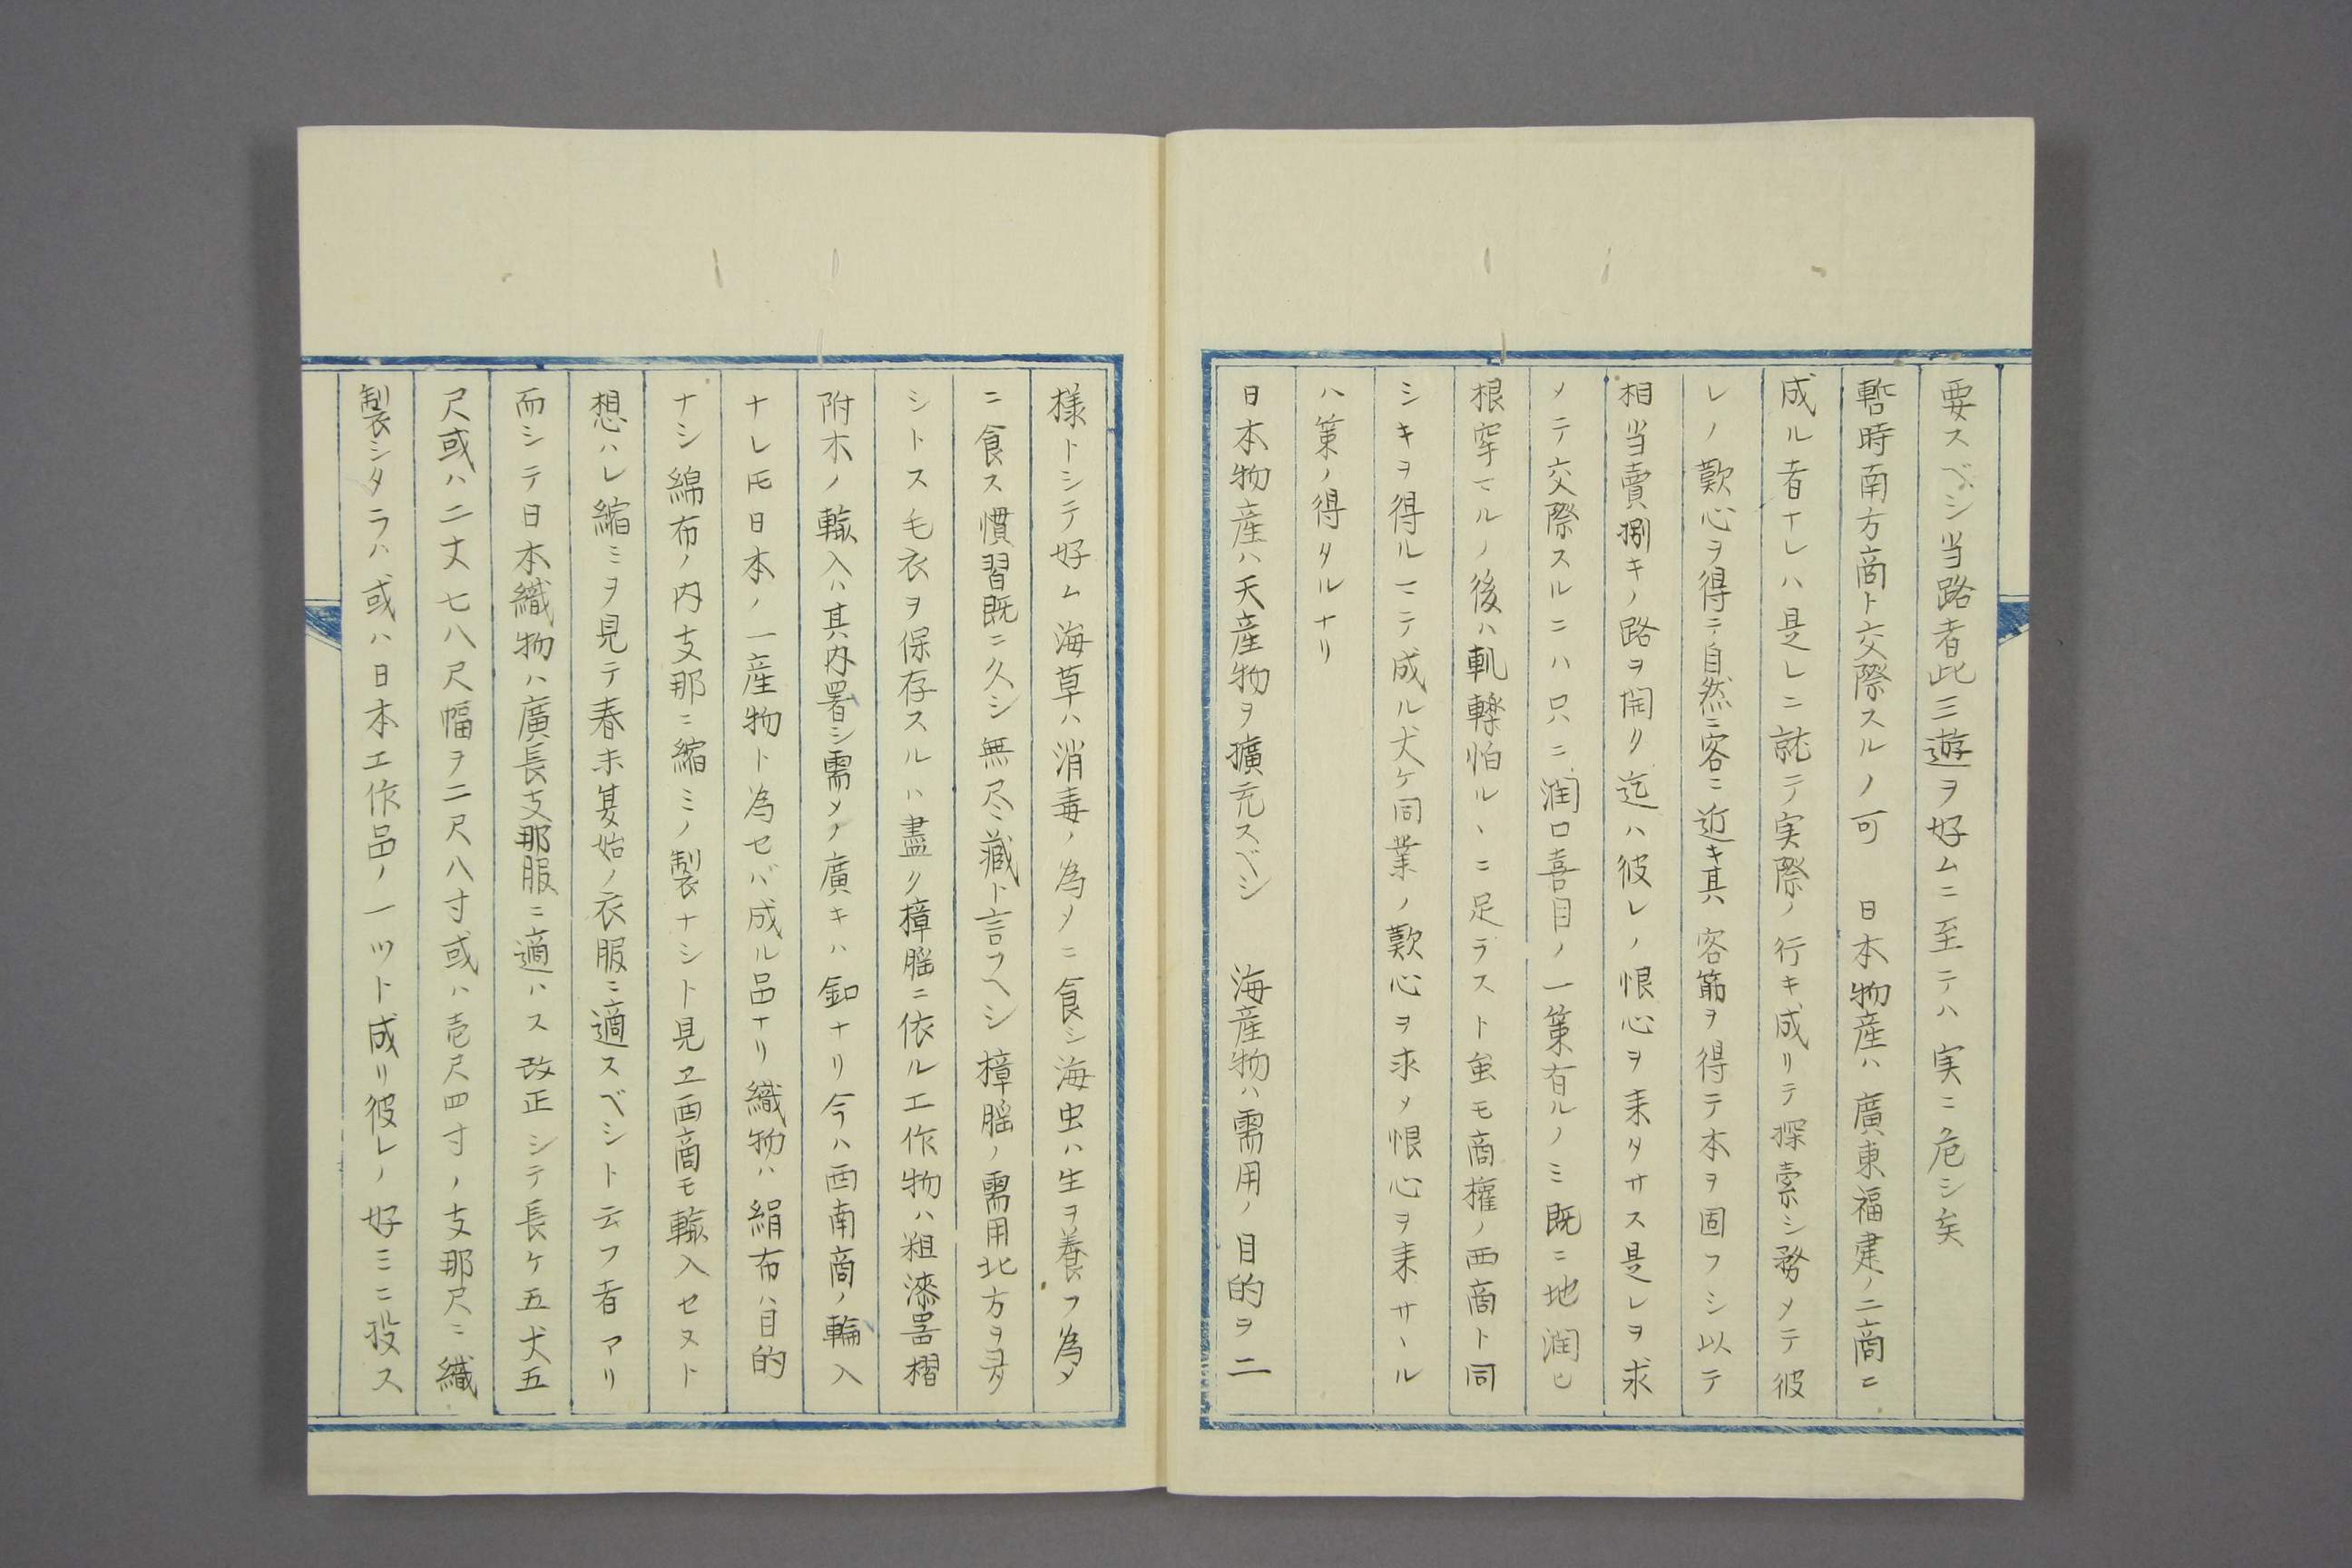 要スベシ当路者此三遊ヲ好ムニ至テハ実ニ危シ矣
暫時南方商ト交際スルノ可　日本物産ハ廣東福建ノ二商ニ
成ル者ナレハ是レニ就テ実際ノ行キ成リテ探索シ務メテ彼
レノ歡心ヲ得テ自然ニ客ニ近キ其客筋ヲ得テ本ヲ固フシ以テ
相当賣捌キノ路ヲ開リ迄ハ彼レノ恨心ヲ来タサス是レヲ求
メテ交際スルニハ只ニ潤口喜目ノ一策有ルノミ既ニ地潤ヒ
根牢マルノ後ハ軋轢怕ルヽニ足ラスト虽モ商權ノ西商ト同
シキヲ得ルマテ成ル犬ケ同業ノ歡心ヲ求メ恨心ヲ来サヽル
ハ策ノ得タルナリ
日本物産ハ天産物ヲ擴充スベシ　海産物ハ需用ノ目的ヲ二
様トシテ好ム海草ハ消毒ノ為メニ食シ海虫ハ生ヲ養フ為メ
ニ食ス慣習既ニ久シ無尽藏ト言フヘシ樟腦ノ需用北方ヲ夛
シトス毛衣ヲ保存スルハ盡ク樟腦ニ依ル工作物ハ粗漆噐摺
附木ノ輸入ハ其内署シ需メノ廣キハ釦ナリ今ハ西南商ノ輪入
ナレ𪜈日本ノ一産物ト為セバ成ル品ナリ織物ハ絹布ハ目的
ナシ綿布ノ内支那ニ縮ミノ製ナシト見ヱ西商モ輸入セヌト
想ハレ縮ミヲ見テ春末夏始ノ衣服ニ適スベシト云フ者アリ
而シテ日本織物ハ廣長支那服ニ適ハス改正シテ長ケ五丈五
尺或ハ二丈七八尺幅ヲ二尺八寸或ハ壱尺四寸ノ支那尺ニ織
製シタラハ或ハ日本工作品ノ一ツト成リ彼レノ好ミニ投ス